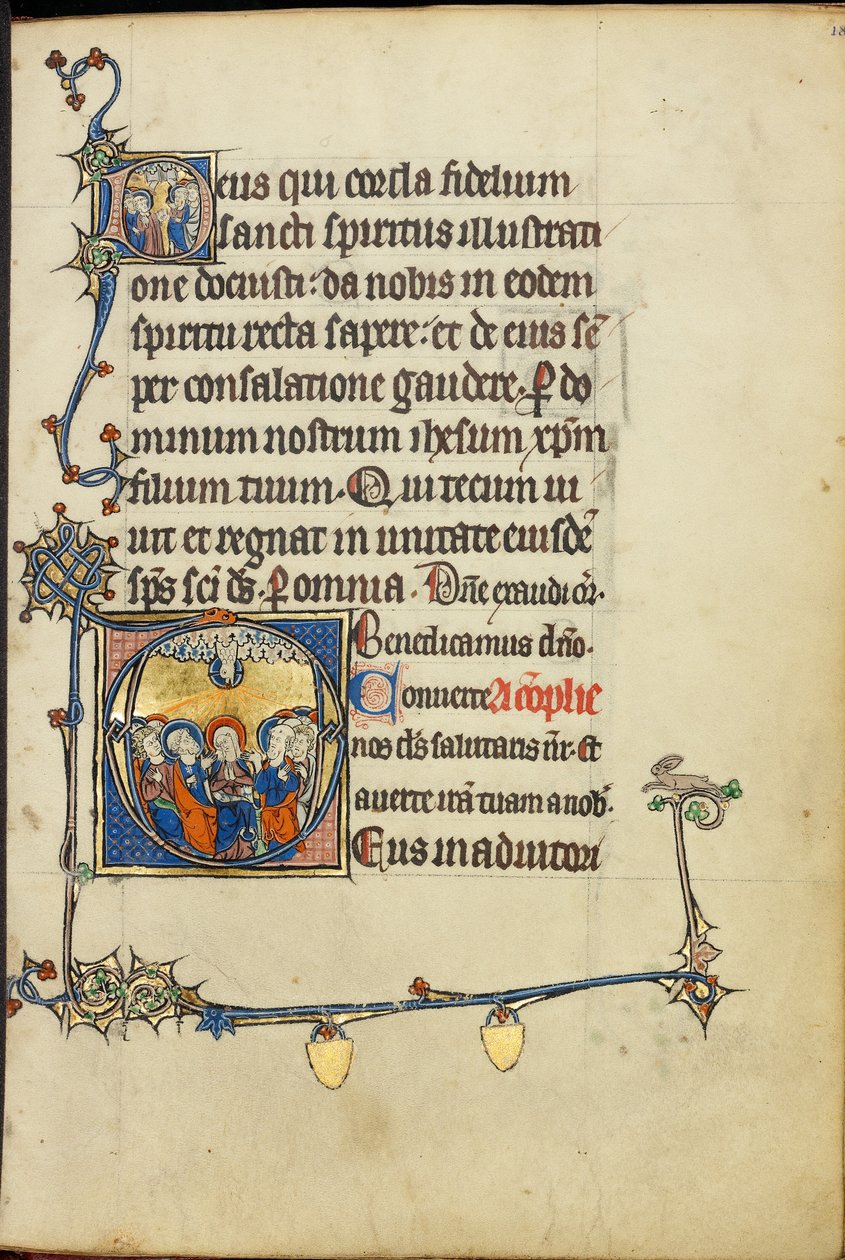 18
Deus qui corda fidelium
sancti spiritus illustrati
one docuisti: da nobis in eodem
spiritu recta sapere: et de eius sē
per consalatione gaudere. ꝑ do
minum nostrum ihesum xp̄m
filium tuum. Qui tecum ui
uit et regnat in unitate eiusdē
sp̄s sc̄i d̄s. ꝑ omnia. Dn̄e exaudi or̄.
Benedicamus dn̄o.
Conuerte A cōplie
nos d̄s salutaris n̄r. Et
auerte irā tuam a nob̄.
Deus in adiutori